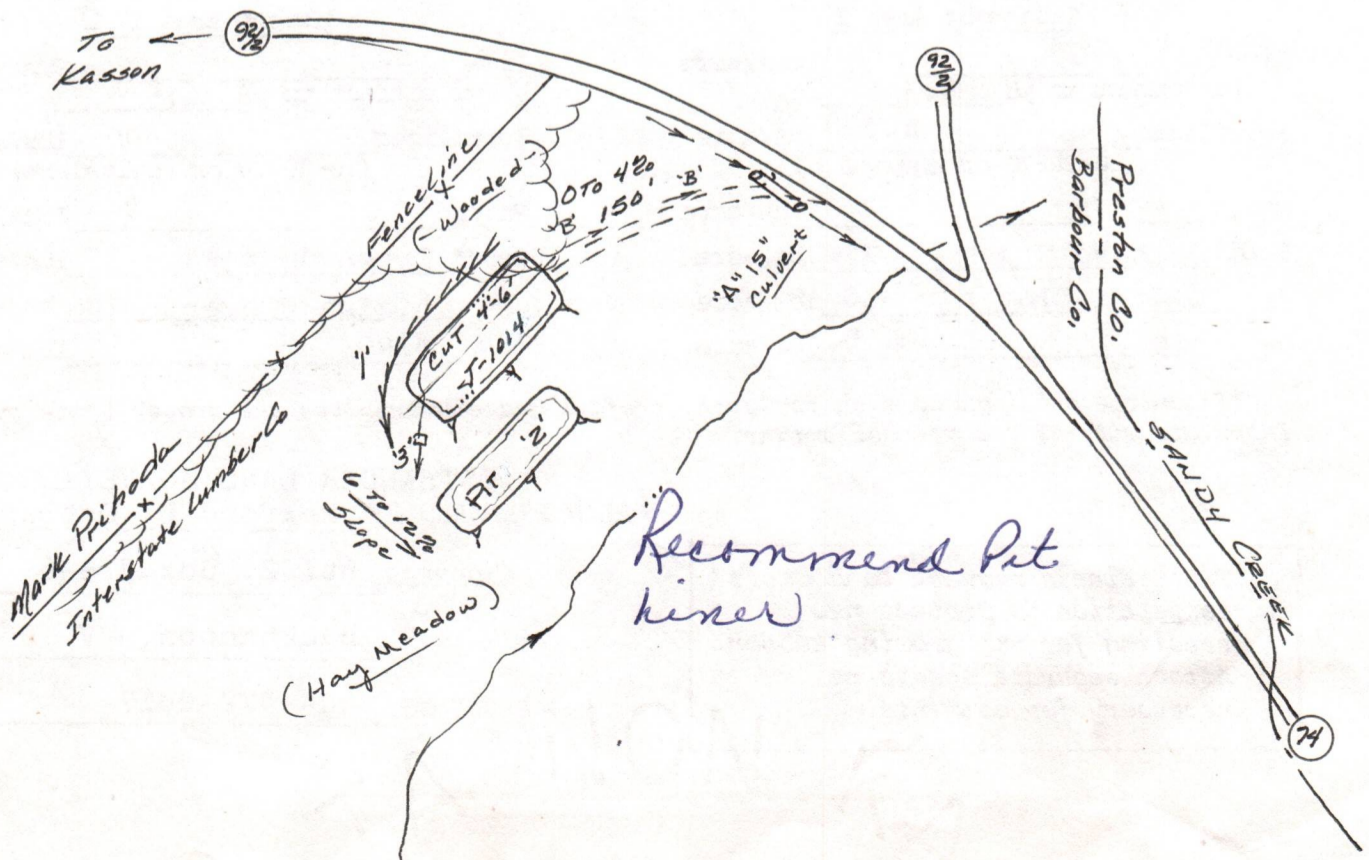 To
Kasson
92/2
92/2
Preston Co.
Barbour Co.
Fence Line
Wooded
0 To 4%
150'
'B'
'B'
"A" 15"
Culvert
'1'
CUT 4'-6'
J-1014
'3'
Pit '2'
6 To 12%
Slope
Mark Prihoda
Interstate Lumber Co
(Hay Meadow)
Recommend Pit
Liner
SANDY CREEK
74